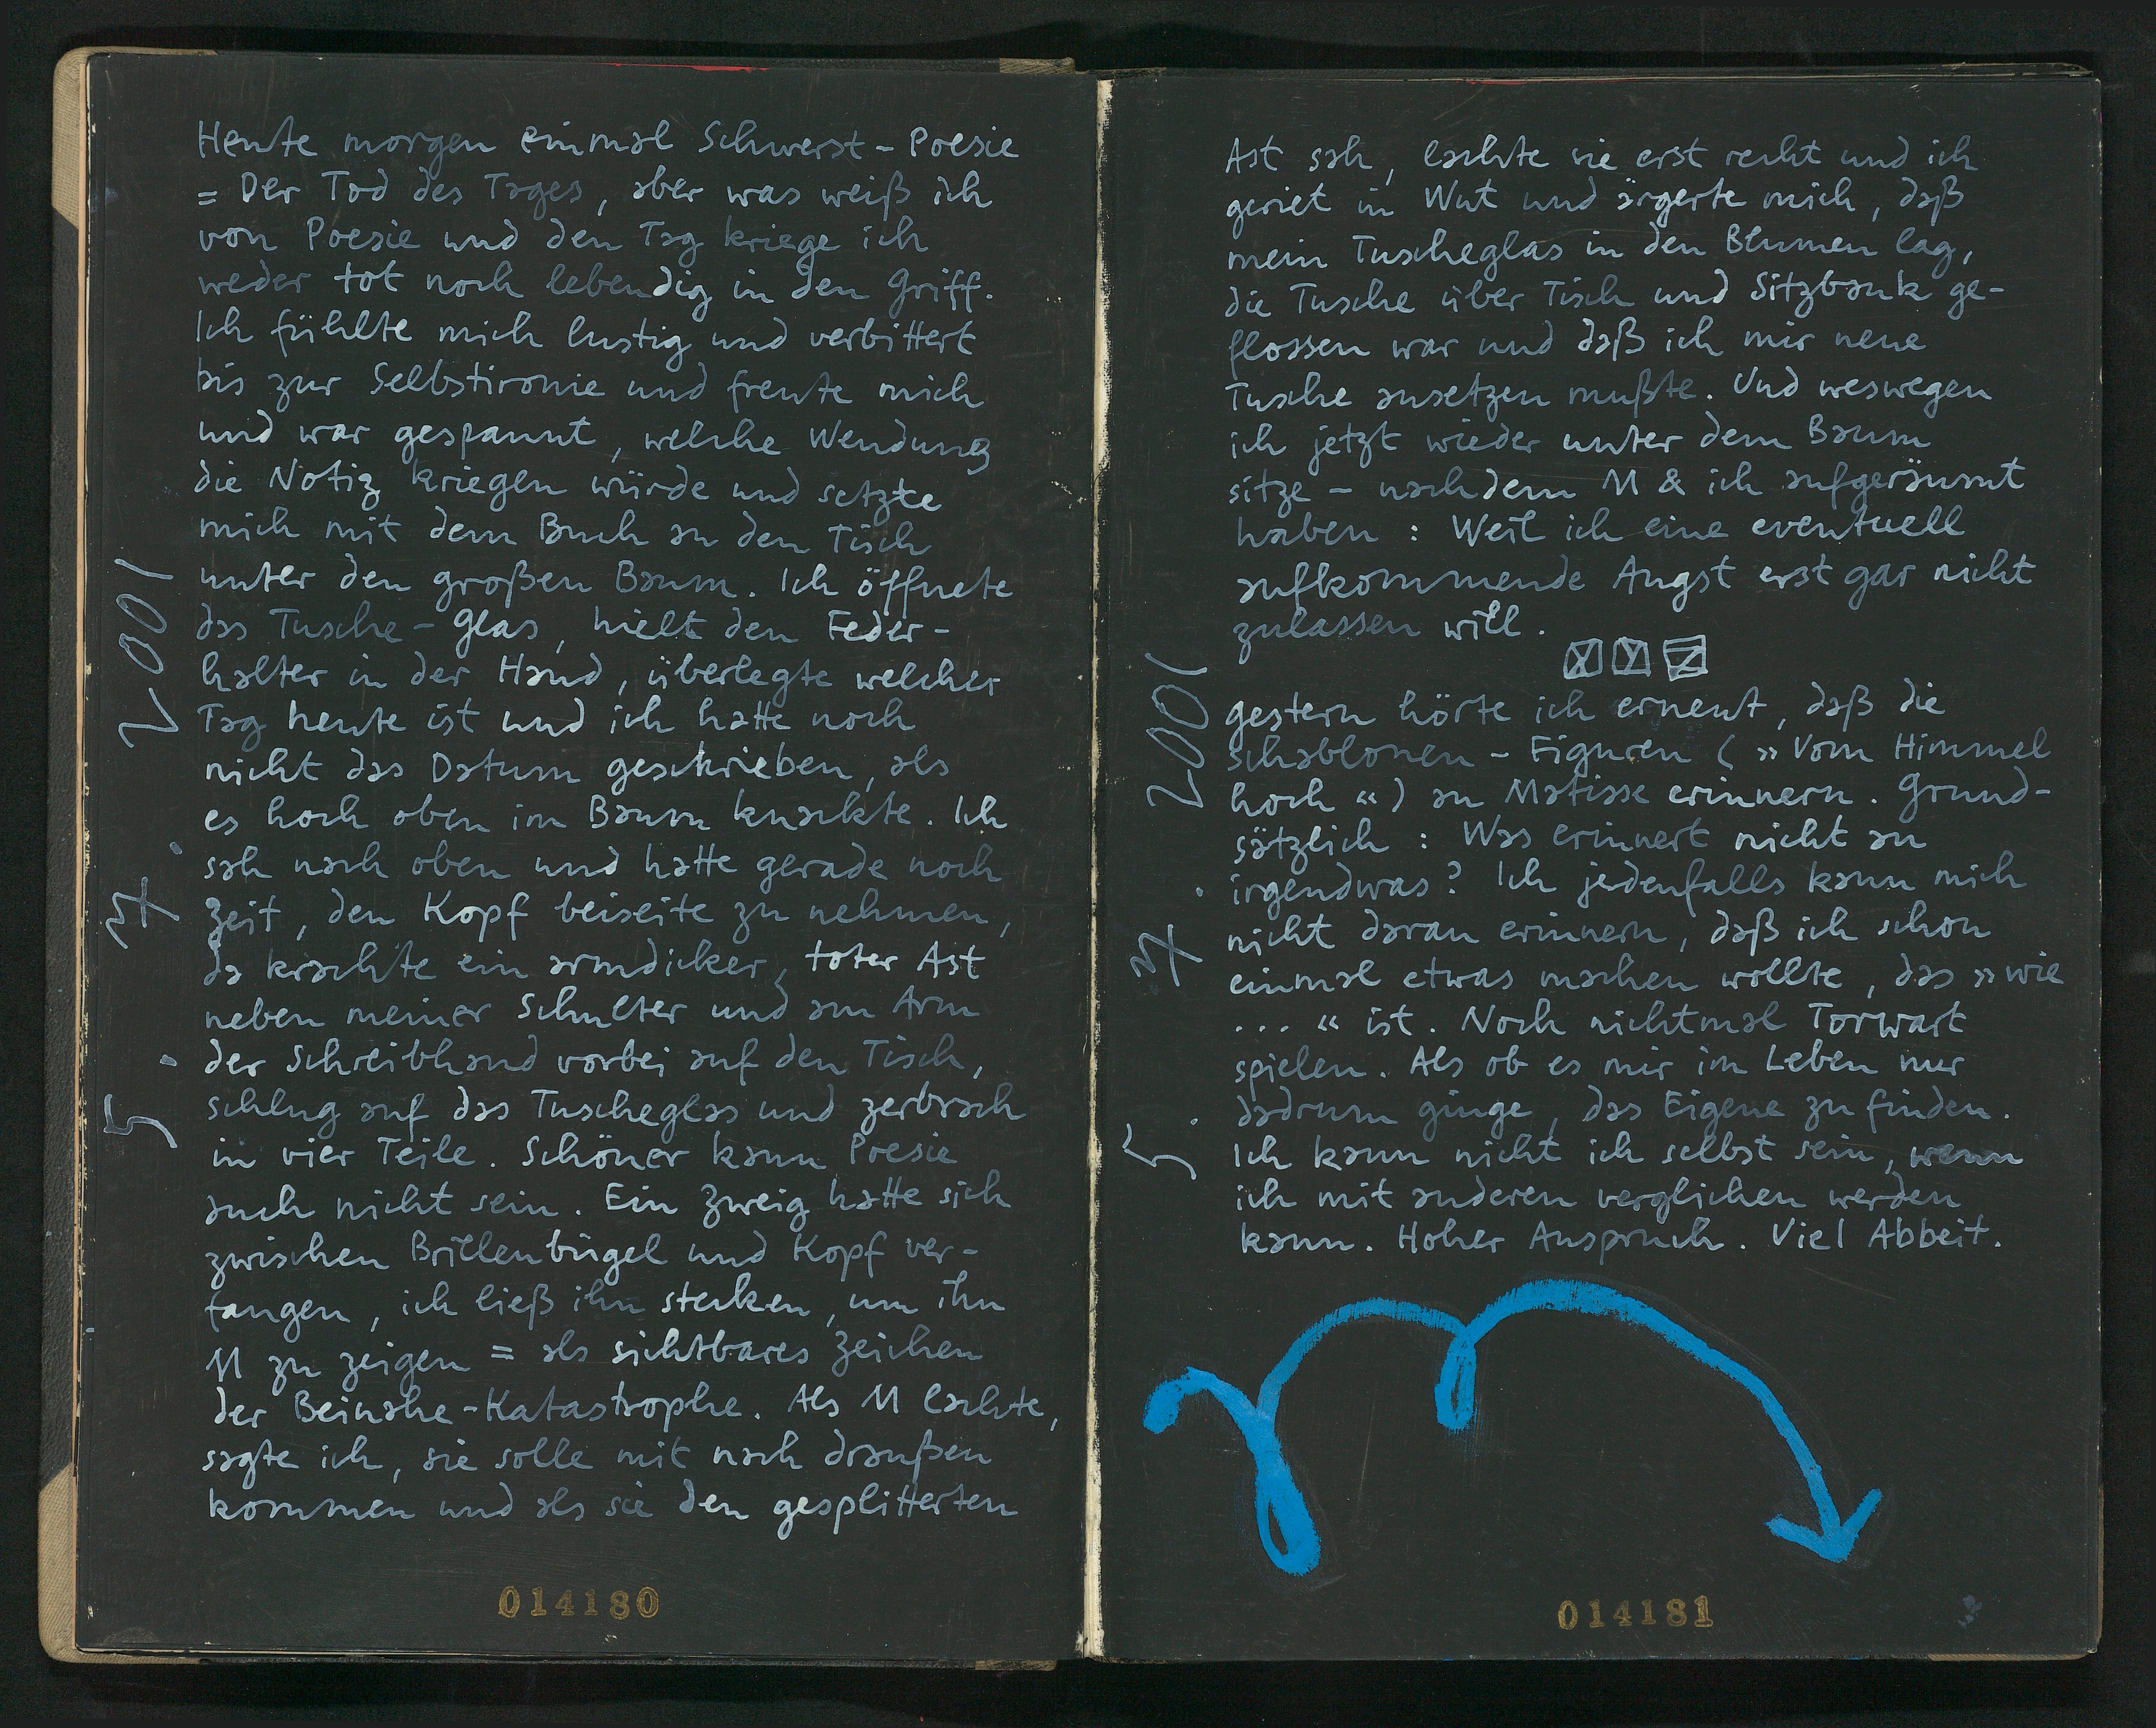 Heute morgen einmal Schwerst-Poesie
= Der Tod des Tages, aber was weiß ich
von Poesie und den Tag kriege ich
weder tot noch lebendig in den Griff.
Ich fühlte mich lustig und verbittert
bis zur Selbstironie und freute mich
und war gespannt, welche Wendung
die Notiz kriegen würde und setzte
mich mit dem Buch an den Tisch
unter den großen Baum. Ich öffnete
das Tusche-Glas, hielt den Feder-
halter in der Hand, überlegte welcher
Tag heute ist und ich hatte noch
nicht das Datum geschrieben, als
es hoch oben im Baum knackte. Ich
sah nach oben und hatte gerade noch
Zeit, den Kopf beiseite zu nehmen,
da krachte ein armdicker, toter Ast
neben meiner Schulter und am Arm
der Schreibhand vorbei auf den Tisch,
schlug auf das Tuscheglas und zerbrach
in vier Teile. Schöner kann Poesie
auch nicht sein. Ein Zweig hatte sich
zwischen Brillenbügel und Kopf ver-
fangen, ich ließ ihn stecken, um ihn
M zu zeigen = als sichtbares Zeichen
der Beinahe-Katastrophe. Als M lachte,
sagte ich, sie solle mit nach draußen
kommen und als sie den gesplitterten
5. 7. 2001
014180
Ast sah, lachte sie erst recht und ich
geriet in Wut und ärgerte mich, daß
mein Tuscheglas in den Blumen lag,
die Tusche über Tisch und Sitzbank ge-
flossen war und daß ich mir neue
Tusche ansetzen mußte. Und weswegen
ich jetzt wieder unter dem Baum
sitze - nachdem M & ich aufgeräumt
haben : Weil ich eine eventuell
aufkommende Angst erst gar nicht
zulassen will.
X Y Z
gestern hörte ich erneut, daß die
Schablonen-Figuren (»Vom Himmel
hoch«) an Matisse erinnern. Grund-
sätzlich : Was erinnert nicht an
irgendwas? Ich jedenfalls kann mich
nicht daran erinnern, daß ich schon
einmal etwas machen wollte, das »wie
...« ist. Noch nichtmal Torwart
spielen. Als ob es mir im Leben nur
dadrum ginge, das Eigene zu finden.
Ich kann nicht ich selbst sein, wenn
ich mit anderen verglichen werden
kann. Hoher Anspruch. Viel Abbeit.
5. 7. 2001
014181